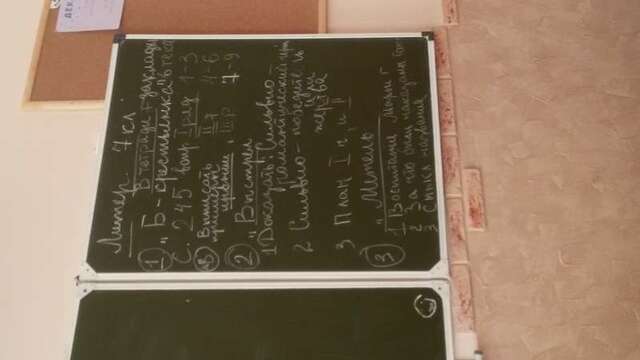 Литер. 7 кл
В тетради + закладки
1 „Б-крестьянка" в тет
С. 245 вопр I ряд 1-3
Выписать II р 4-6
примеры
иронии, III р 7-9
2 „Выстрел
1 Доказать: Сильвио -
романтический герой
2 Сильвио - победитель
или
жертва
3 План I ч, и II
3 „Метель
1 Воспитание Марьи Г
2 За что они наказаны
3 Смысл названия
ДЕК